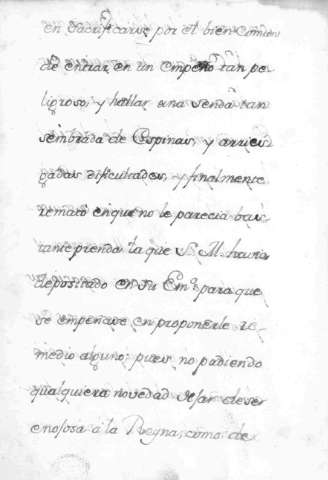 en sacrificarse por el bien Comun
de entrar en un empeño tan pe-
ligroso, y hallar una senda tan
sembrada de Espinas, y arries-
gadas dificultades, y finalmente
remató en que no le parecia bas-
tante prenda la que S. M. havia
depositado en su Em.ª para que
se empeñase en proponerle re-
medio alguno: pues no pudiendo
qualquiera novedad dejar de ser
enojosa à la Reyna, como de